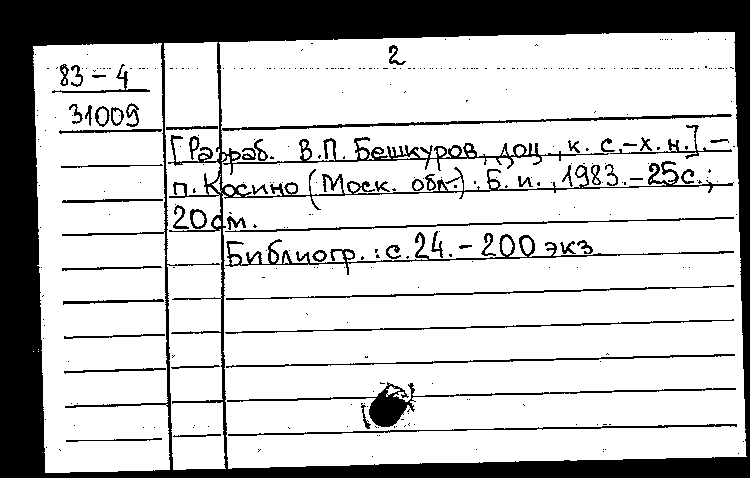 2
83-4
31009
[Разраб. В.П. Бешкуров, доц., к. с.-х. н.]. –
п. Косино (Моск. обл.): Б. и., 1983. – 25с.;
20см.
Библиогр.: с. 24. – 200 экз.